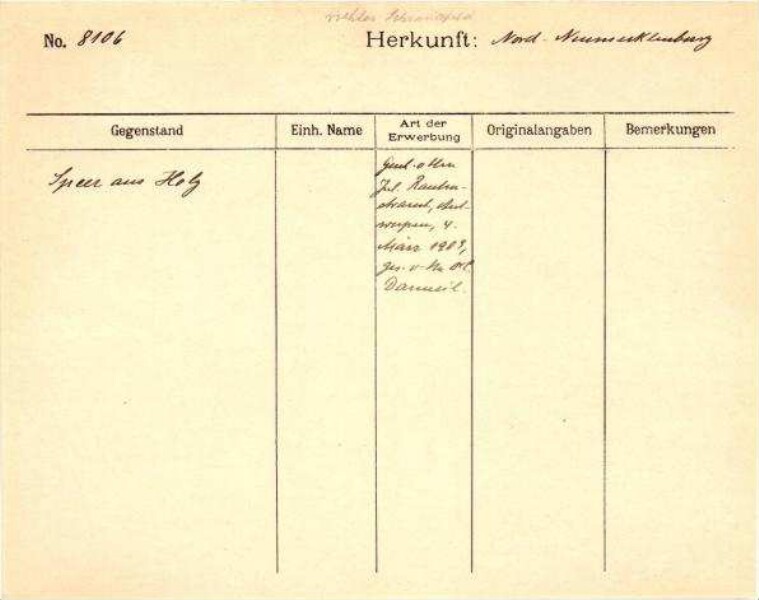 No. 8106
Herkunft: Nord-Neumecklenburg
Gegenstand
Einh. Name
Art der
Erwerbung
Originalangaben
Bemerkungen
Speer aus Holz
Jul. Rauten-
strauch, Ant-
werpen, 4.
März 1908,
ges. v.